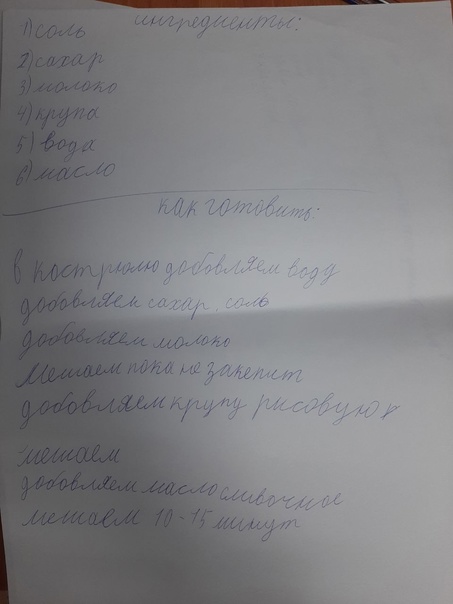 ингредиенты:
1) соль
2) сахар
3) молоко
4) крупа
5) вода
6) масло
как готовить:
в кострюлю добовляем воду
добовляем сахар, соль
добовляем молоко
Мешаем пока не закепит
добовляем крупу рисовую
мешаем
добовляем масло сливочное
мешаем 10-15 минут